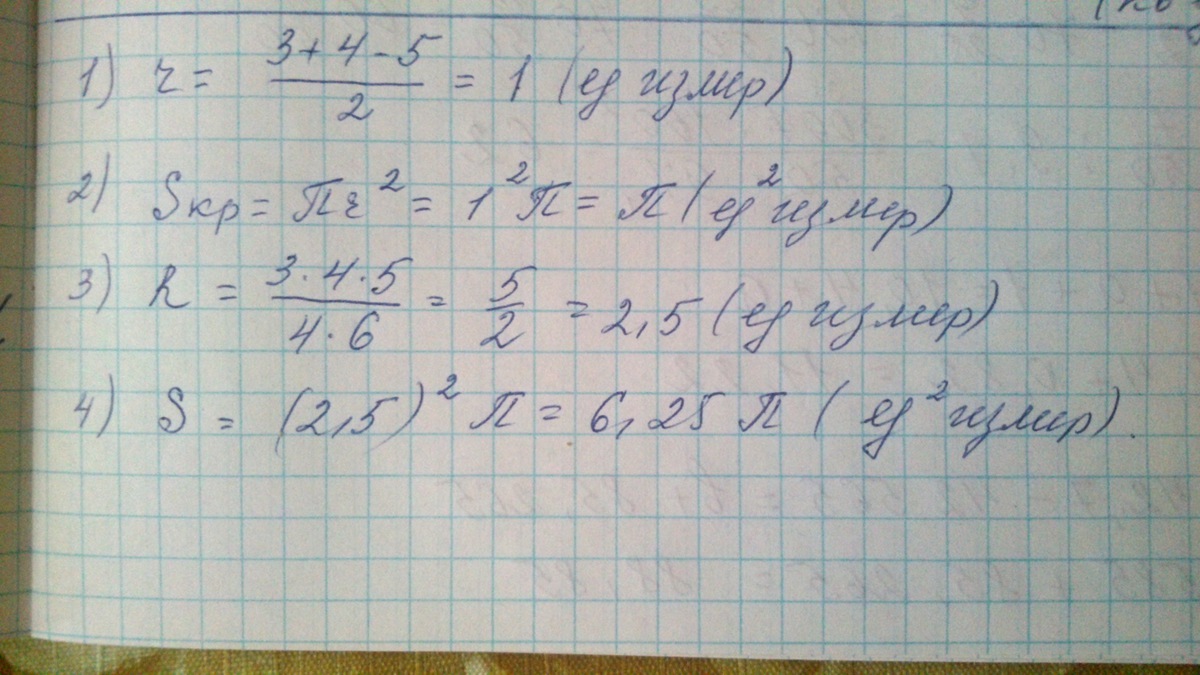 1) r = (3+4-5)/2 = 1 (ед измер)
2) Sкр = Пr² = 1² П = П (ед² измер)
3) R = (3·4·5)/(4·6) = 5/2 = 2,5 (ед измер)
4) S = (2,5)² П = 6,25 П (ед² измер).